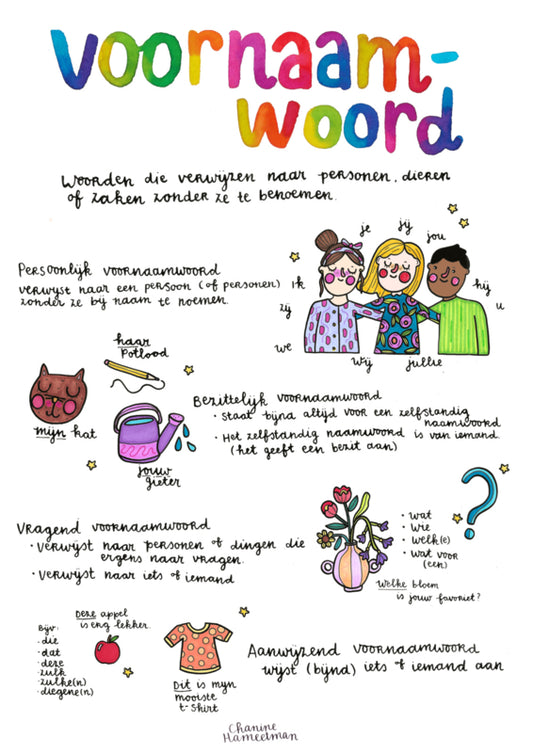 voornaam-
woord
Woorden die verwijzen naar personen, dieren
of zaken zonder ze te benoemen.
je
jij
jou
Persoonlijk voornaamwoord
verwijst naar een persoon (of personen)
zonder ze bij naam te noemen.
ik
hij
zij
u
we
wij
jullie
haar
Potlood
mijn kat
jouw
gieter
Bezittelijk voornaamwoord
• Staat bijna altijd voor een zelfstandig
naamwoord
• Het zelfstandig naamwoord is van iemand.
(het geeft een bezit aan)
Vragend voornaamwoord
• Verwijst naar personen of dingen die
ergens naar vragen.
• Verwijst naar iets of iemand
• wat
• wie
• welk(e)
• wat voor
(een)
?
Welke bloem
is jouw favoriet?
Deze appel
is erg lekker.
Bijv:
• die
• dat
• deze
• zulk
• zulke(n)
• diegene(n)
Dit is mijn
mooiste
t-shirt
Aanwijzend voornaamwoord
wijst (bijna) iets of iemand aan
Chanine
Hameetman